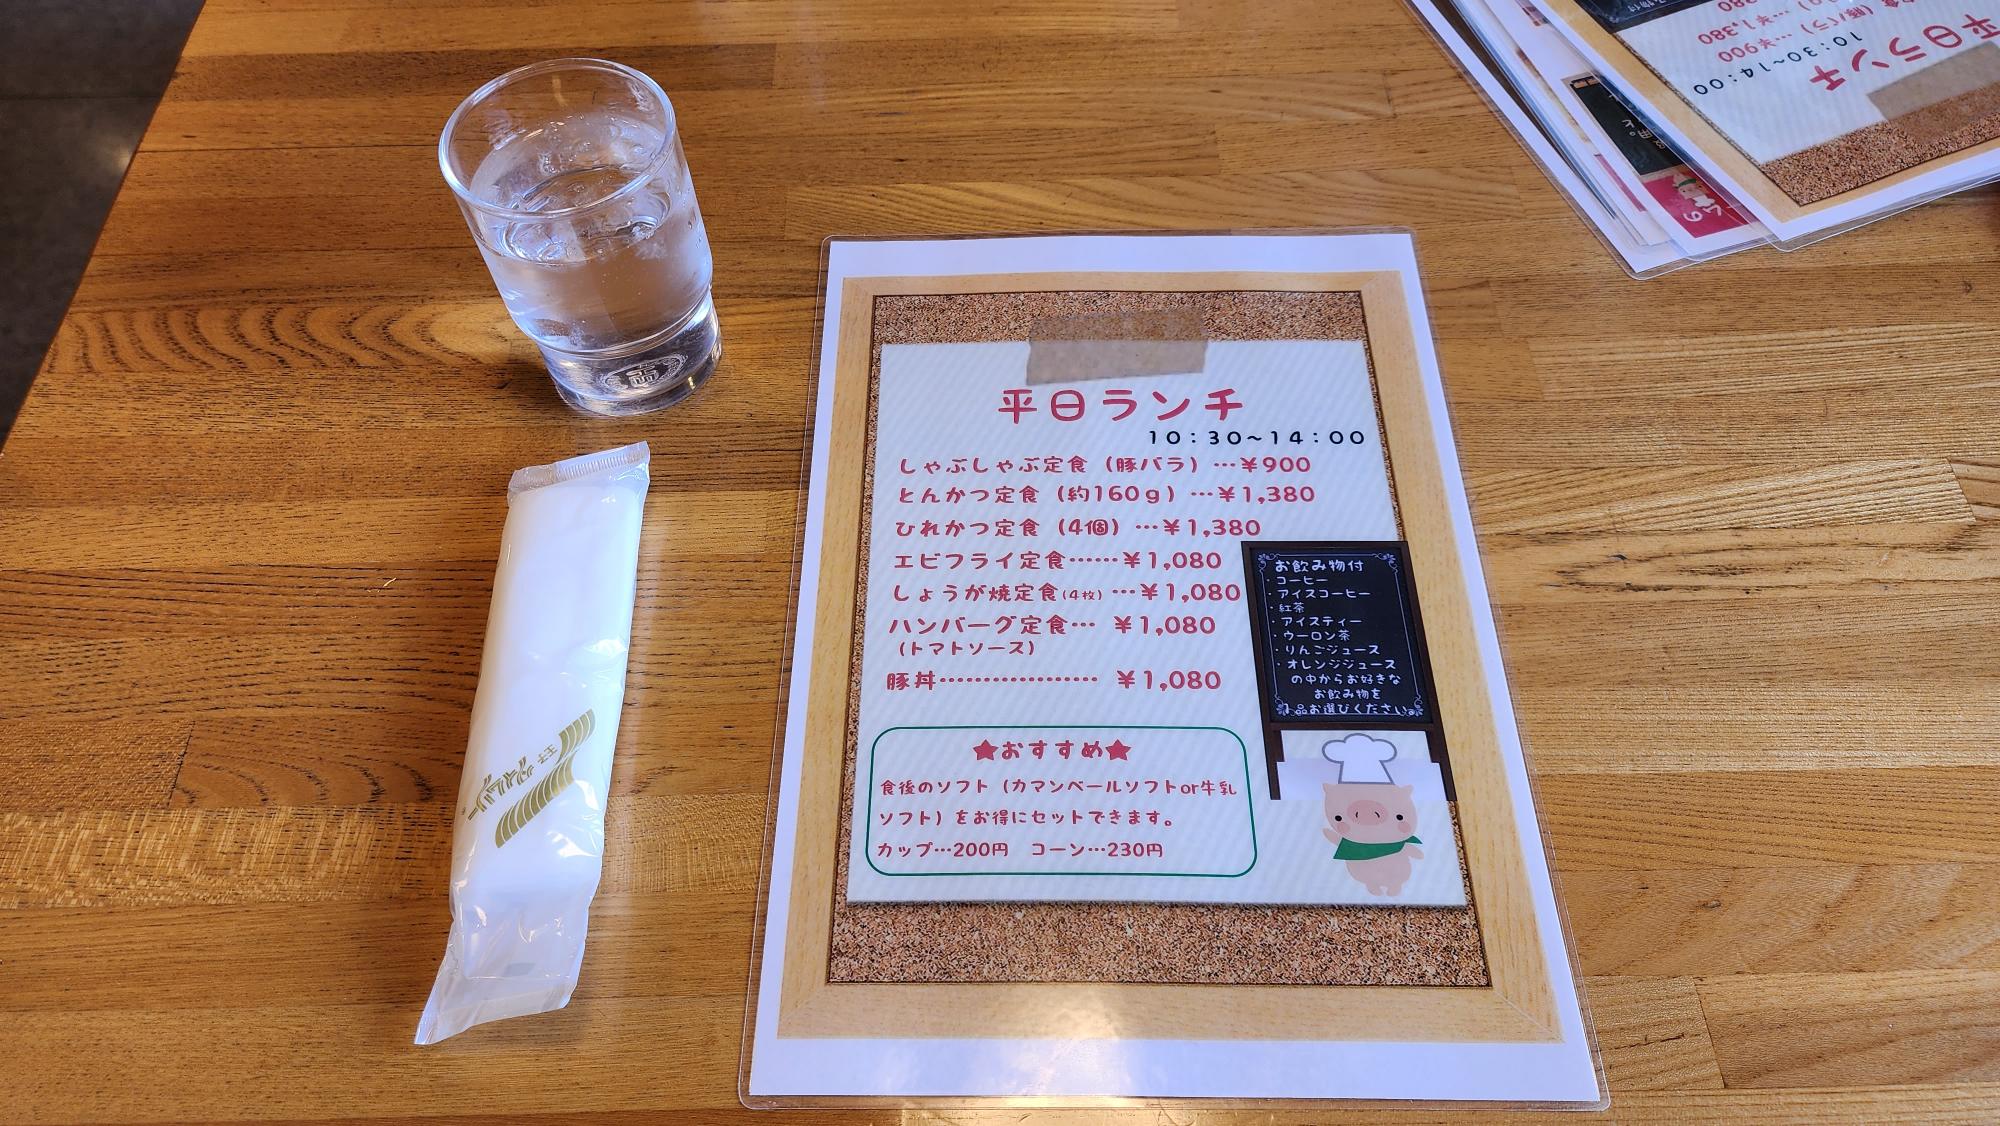 平日ランチ
10:30~14:00
しゃぶしゃぶ定食(豚バラ)…¥900
とんかつ定食(約160g)…¥1,380
ひれかつ定食(4個)…¥1,380
エビフライ定食……¥1,080
しょうが焼定食(4枚)…¥1,080
ハンバーグ定食… ¥1,080
(トマトソース)
豚丼……………… ¥1,080
お飲み物付
・コーヒー
・アイスコーヒー
・紅茶
・アイスティー
・ウーロン茶
・りんごジュース
・オレンジジュース
の中からお好きな
お飲み物を
1品お選びください。
★おすすめ★
食後のソフト(カマンベールソフトor牛乳
ソフト)をお得にセットできます。
カップ…200円 コーン…230円
平日ランチ
10:30~14:00
…¥900
…¥1,380